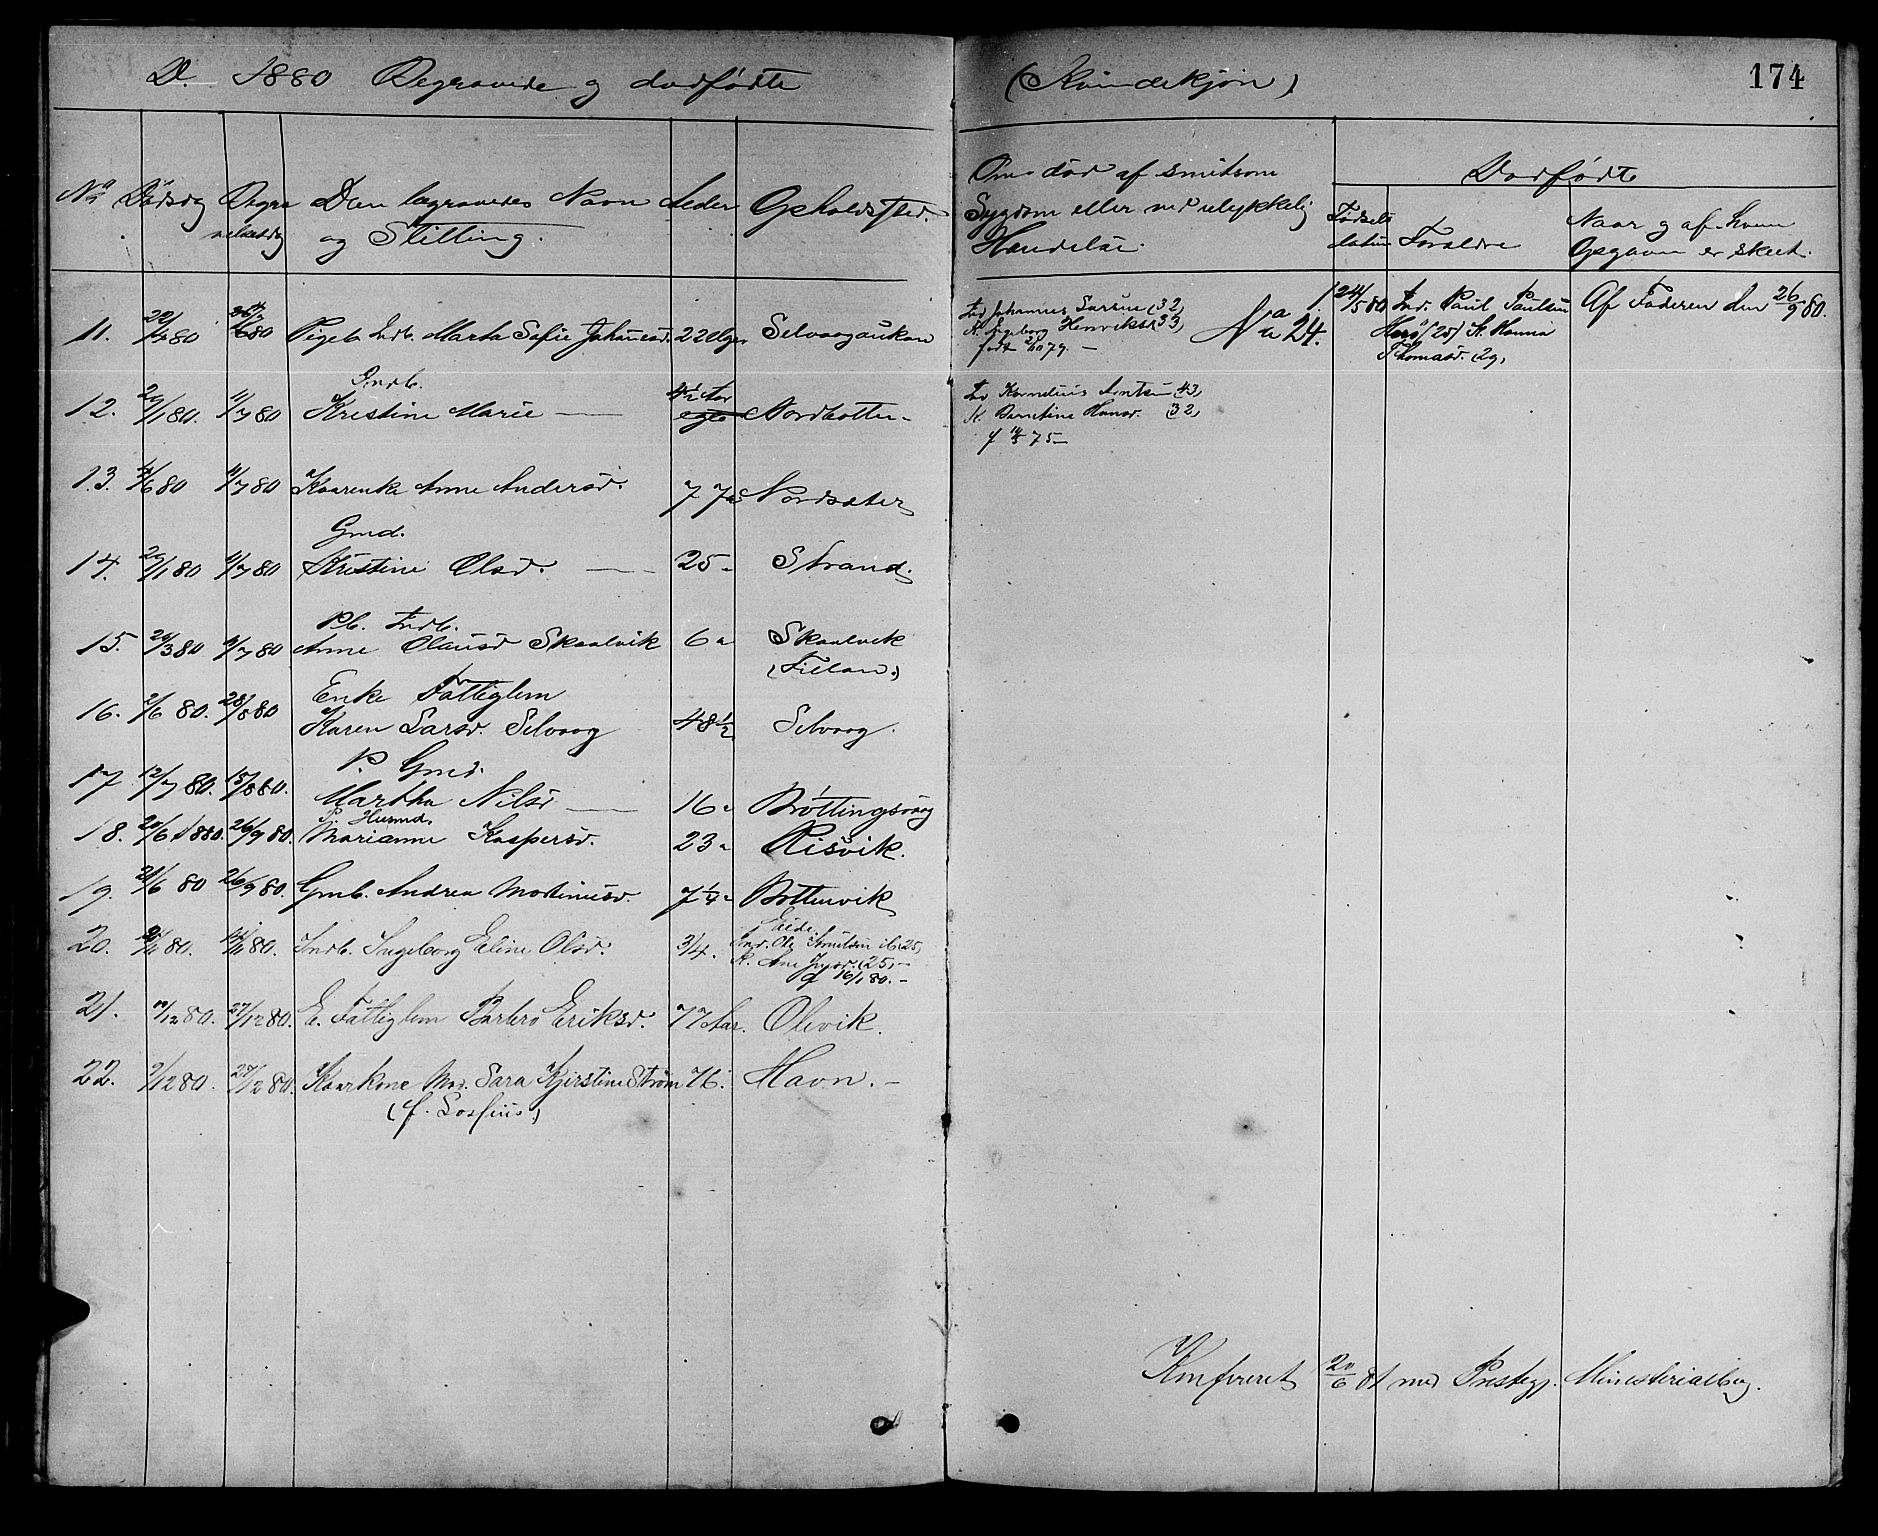 D. 1880 Begravede og dødfødte (Kvindekjøn) 174
No Dødsdag Begravelsesdag Den begravedes Navn og Stilling. Alder Opholdssted.
Om død af smitsom Sygdom eller ved ulykkelig Hændelse.
Dødfødte
Fødsels datum Forældre Naar og af hvem Opgaven er skeet.
11. 22/4 80 Pigeb. Indb. Marta Sofie Johannesd. 22 Uger Selvaagaukan
Ind Johannes Larsen (32)
K. Ingeborg Henriksd (33)
født 79. —
No 24.
1. 24/5 80 Ind. Paul Paulsen
Herø (25) K. Hanna
Thomasd. (29)
Af Faderen den 26/9 80.
12. 80. 11/7 80 Indb.
Kristine Marie — 4½ Aar Nordbotten -
Ind Kornelius Arntsen (43)
K. Berntine Hansd. (32)
f 75 —
13. /6 80 11/7 80 Kaarenke Anne Andersd. 77 a Nordsæter
Gmd.
14. 80 11/7 80 Kristine Olsd. — 25 " Strand.
Pb. Indb.
15. 29/3 80 11/7 80 Anne Olausd Skaalvik 6 " Skaalvik
(Fillan.)
Enke Fattiglem
16. 2/6 80. 28/8 80 Karen Larsd. Selvaag 48½ Selvaag.
P. Gmd.
17 12/7 80. 15/8 80. Martha Nilsd — 16 " Bøttingsvaag
P. Husmd.
18. 20/6 1880. 26/9 80. Marianne Kaspersd. 23 " Risvik.
19. 21/6 80 26/9 80. Gmb. Andrea Martinusd. 7¼ " Bottenvik
20. 80. /11 80. Indb. Ingeborg Eline Olsd. 3/4. Eide.
Ind. Ole Arnulsen ib (25)
K. Ane (25) —
f 16/1 80. —
21. 10/12 80. 27/12 80. E. Fattiglem Barbro Eriksd. 77 Aar. Olvik.
22. 9/12 80. 27/12 80. Kaarkone Mad. Sara Kjerstine Strøm 76. Havn. —
(f. Lossius.)
Konfereret 20/6 81 med Prestegj. Ministerialbog.